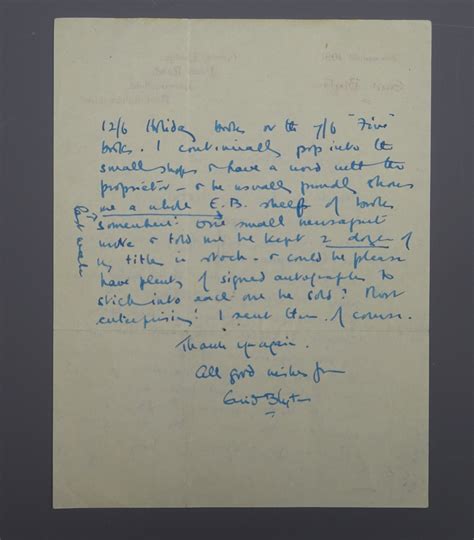 12/6 Holiday books or the 7/6 "Five"
books. I continually pop into the
small shops & have a word with the
proprietor — & he usually proudly shows
me a whole E.B. shelf of books
somewhere! One small newsagent
wrote & told me he kept 2 dozen of
my titles in stock — & could he please
have plenty of signed autographs to
stick into each one he sold! Most
enterprising! I sent them, of course.
Thank you again.
All good wishes from
Enid Blyton